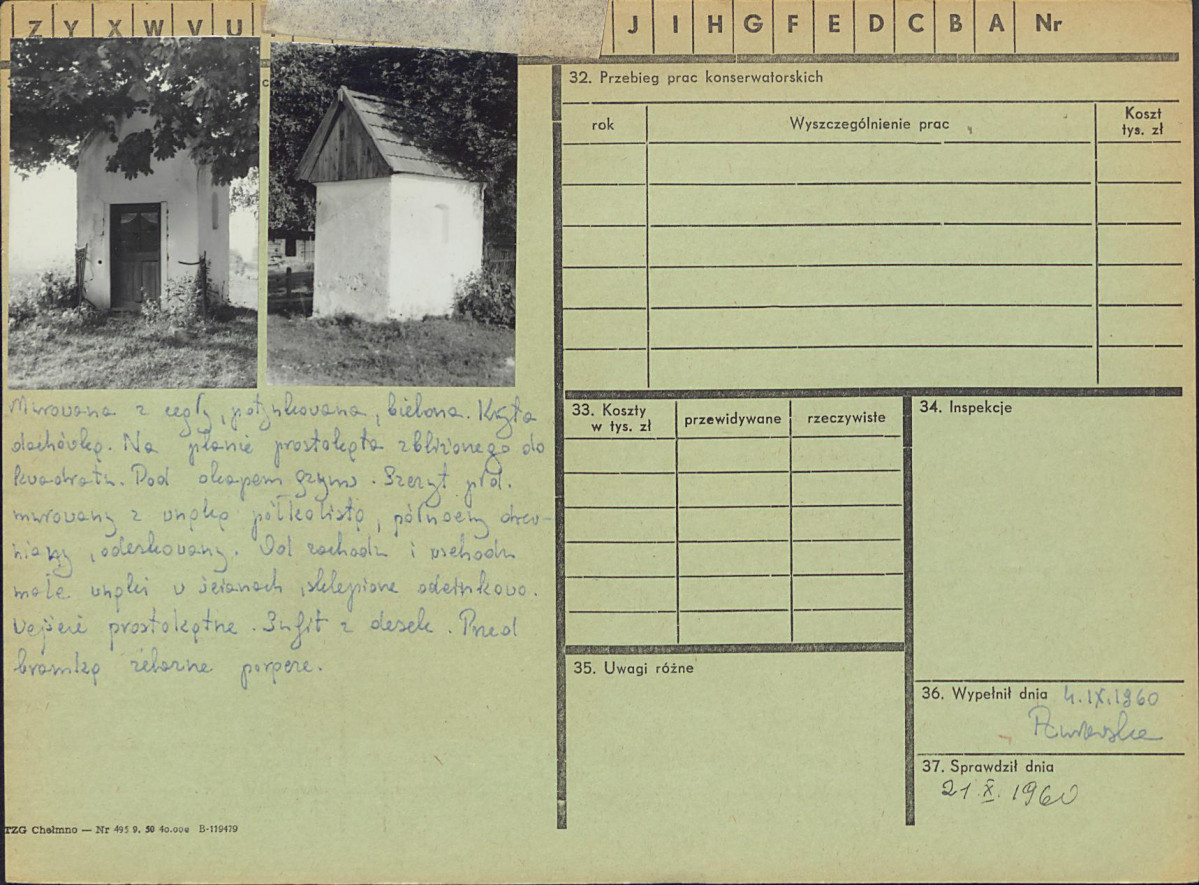 Z Y X W V U
J I H G F E D C B A Nr
Murowana z cegły, potynkowana, bielona. Kryta
dachówką. Na planie prostokąta zbliżonego do
kwadratu. Pod okapem gzyms. Szczyt płd.
murowany z wnęką półkolistą, północny drew-
niany, odeskowany. Od zachodu i wschodu
małe wnęki w ścianach, sklepione odcinkowo.
Wejście prostokątne. Sufit z desek. Przed
bramką żelazne
TZG Chełmno — Nr 495 9. 50 40.000 B-119479
32. Przebieg prac konserwatorskich
rok
Wyszczególnienie prac
Koszt
tys. zł
33. Koszty
w tys. zł
przewidywane
rzeczywiste
34. Inspekcje
35. Uwagi różne
36. Wypełnił dnia 4.IX.1960
37. Sprawdził dnia
21.X.1960